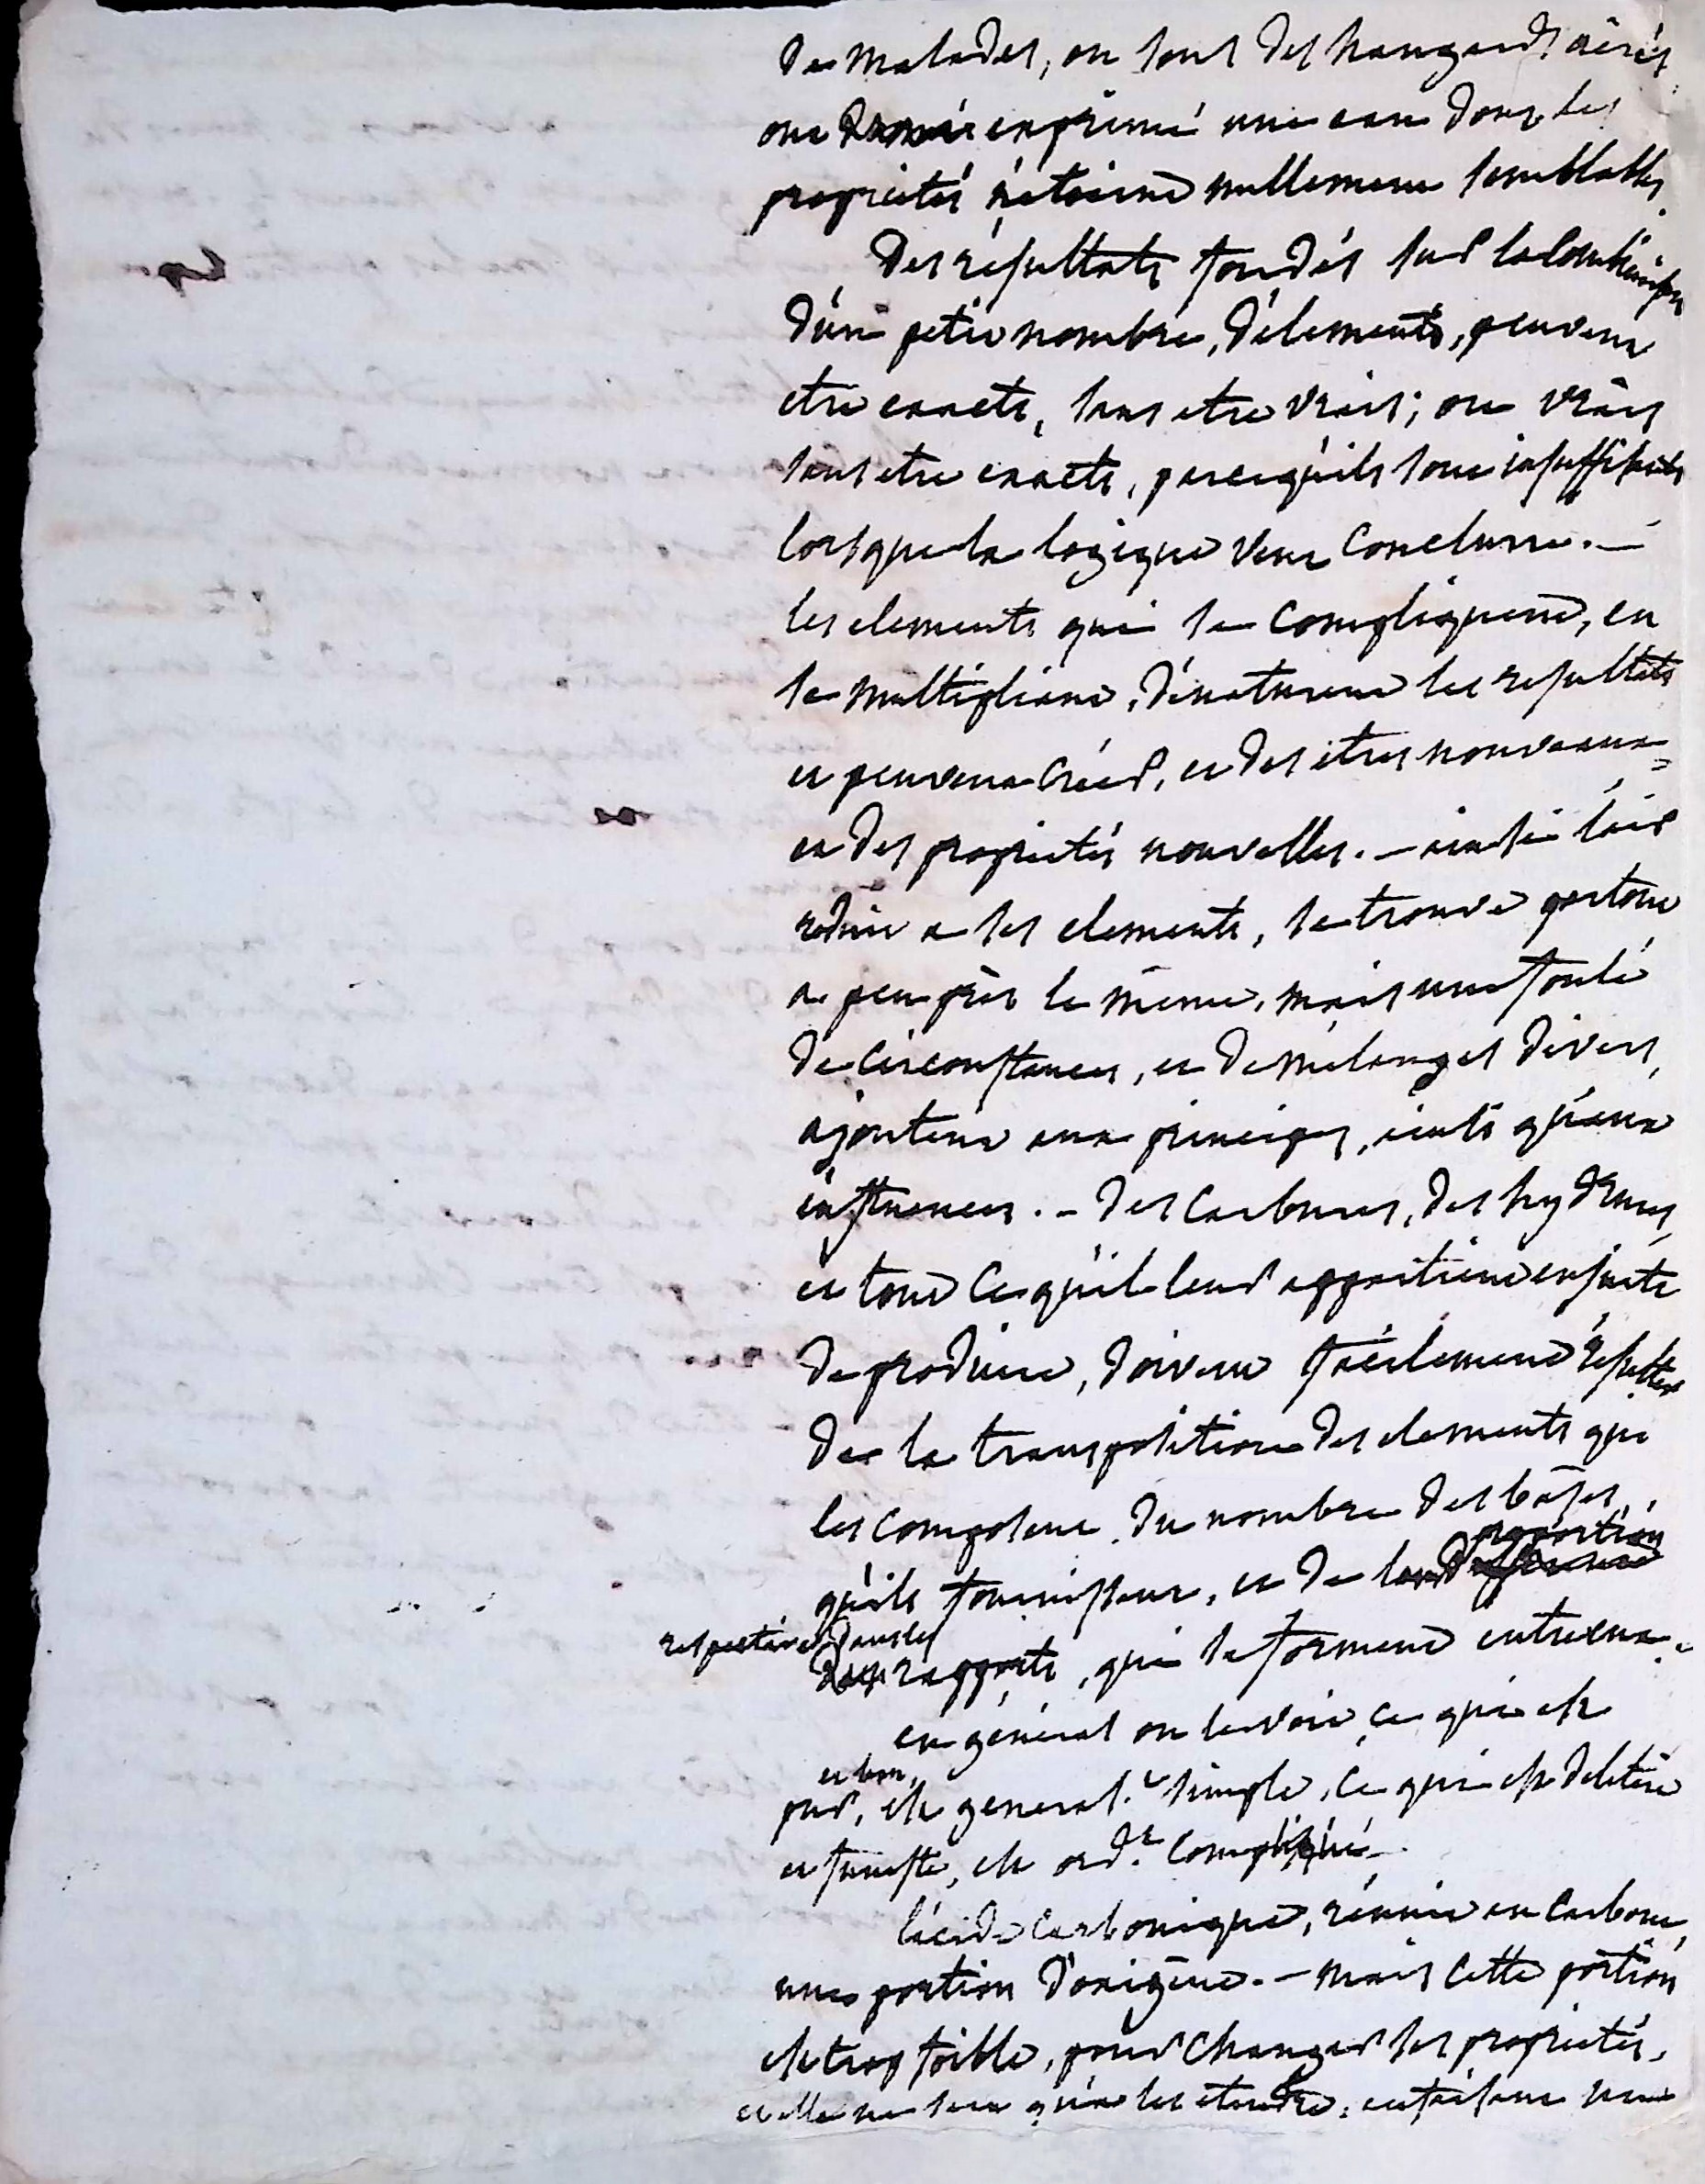 de malades, ou sous des hangards aërés
ont exprimé une eau dont les
proprietés n'étoient nullement semblables.
Des résultats fondés sur la combinaison
d'un petit nombre, d'élements, peuvent
etre exacts, sans etre vrais; ou vrais
sans etre exacts, parcequ'ils sont insuffisants
lorsque la logique veut conclurre. —
les elements qui se compliquent, en
se multipliant, dénaturent les resultats
et peuvent créer, et des êtres nouveaux
et des proprietés nouvelles. — ainsi l'air
reduit a ses elements, se trouve partout
a peu près le même, mais une foule
de circonstances, et de mélanges divers,
ajoutent aux principes, ainsi qu'aux
influences. — des carbures, des hydrures,
et tout ce qu'il leur appartient ensuite
de produire, doivent facilement résulter
de la transposition des elements qui
les composent. du nombre des bases,
qu'ils fournissent, et de leur proportion
respective dans les
rapports, qui se forment entreeux.
en général on le voit ce qui est
et bon,
pur, est general.t simple, ce qui est deletère
et funeste, est ord.re compliqué.
l'acide carbonique, réunit au carbone,
une portion d'oxigène. — mais cette portion
est trop foible, pour changer ses proprietés,
et elle ne sert qu'a les etendre,